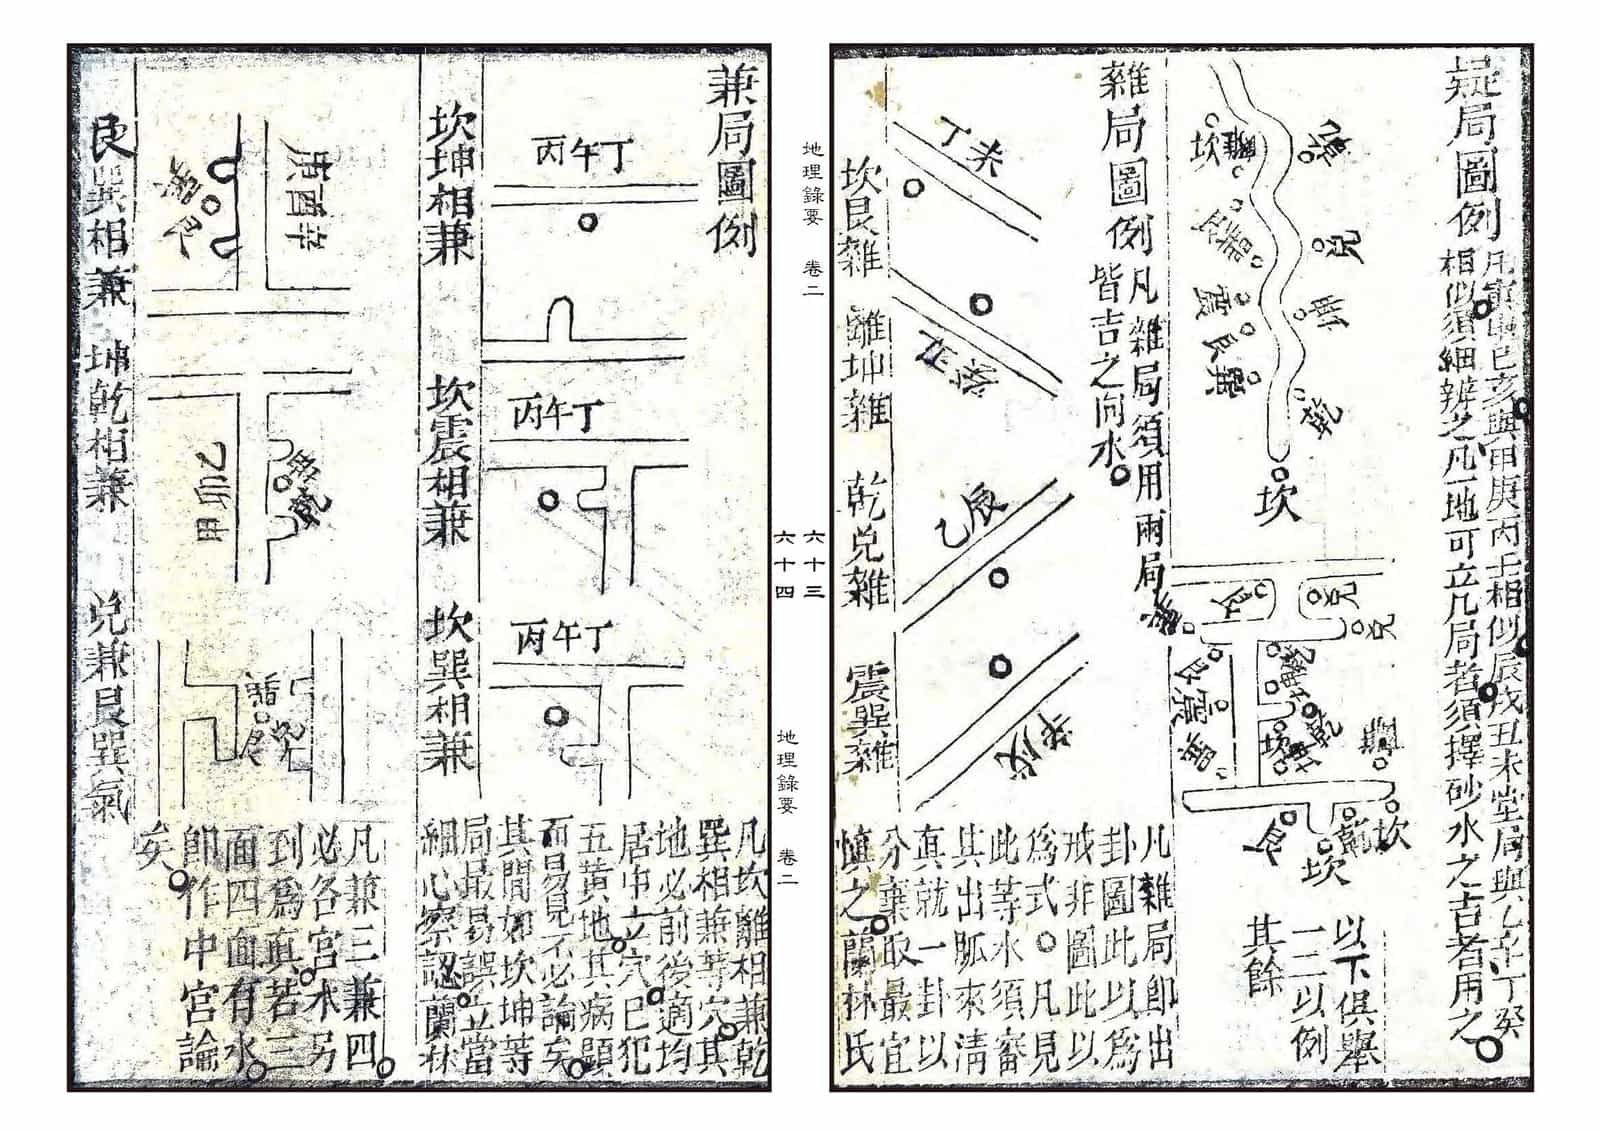 疑局圖例
用寅申巳亥與甲庚丙壬相似辰戌丑未堂局與乙辛丁癸
相似須細辨之凡一地可立几局者須擇砂水之吉者用之
坎
兌
坤
乾
坎
震
艮巽
艮
兌
兌
艮震
坎
乾
艮
坎
乾
坎
以下俱舉
一二以例
其餘
雜局圖例
凡雜局須用兩局
皆吉之向水
丁未
癸丑
乙辰
辛戌
坎艮雜
離坤雜
乾兌雜
震巽雜
凡雜局即出
卦圖此以爲
戒非圖此以
爲式凡見
此等水須審
其出脈來清
真就一卦以
分棄取最宜
慎之蘭林氏
地理錄要 卷二
六十三
六十四
地理錄要 卷二
兼局圖例
丙午丁
丙午丁
丙午丁
坎坤相兼
坎震相兼
坎巽相兼
凡坎離相兼乾
巽相兼等穴其
地必前後適均
居中立穴已犯
五黃地其病顯
而易見不必論矣
其間如坎坤等
局最易誤立當
細心察認蘭林
庚酉辛
甲卯乙
乾
兌
艮
艮巽相兼
坤乾相兼
兌兼艮巽氣
凡兼三兼四
必各宮水另
到爲真若三
面四面有水
即作中宮論
矣